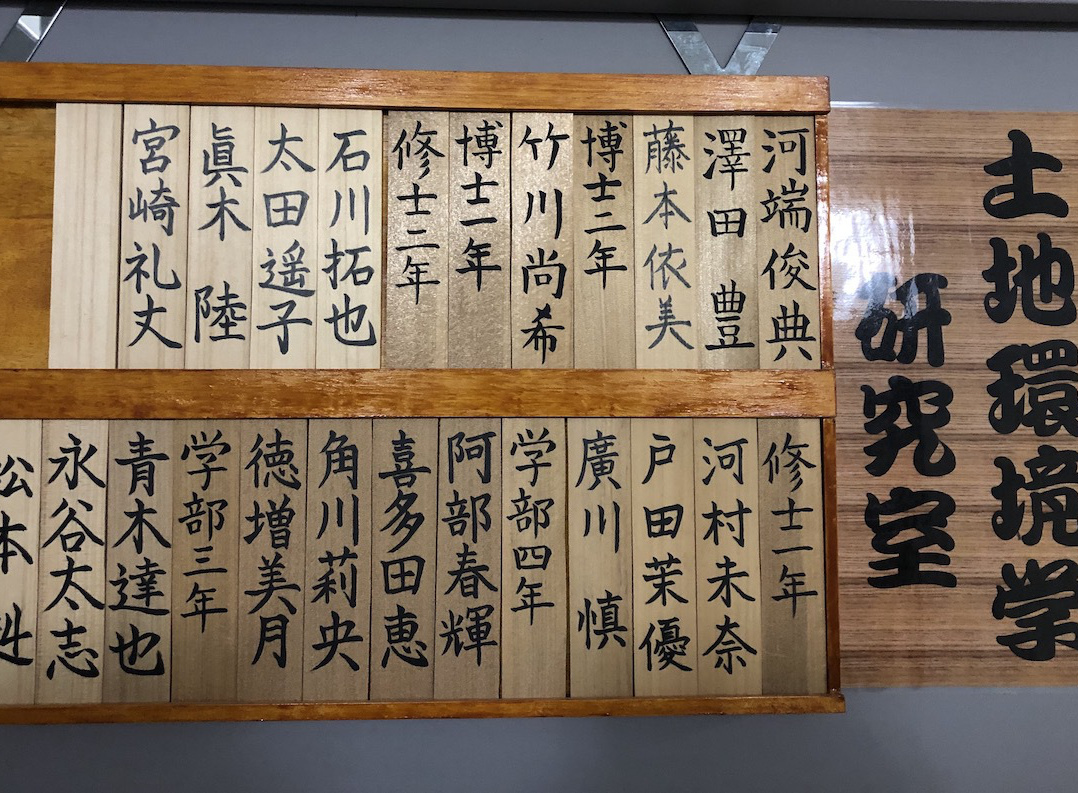 土地環境学
研究室
河端俊典
澤田 豊
藤本依美
博士二年
竹川尚希
博士一年
修士二年
石川拓也
太田遥子
眞木 陸
宮崎礼丈
修士一年
河村未奈
戸田茉優
廣川 慎
学部四年
阿部春輝
喜多田恵
角川莉央
徳増美月
学部三年
青木達也
永谷太志
松本